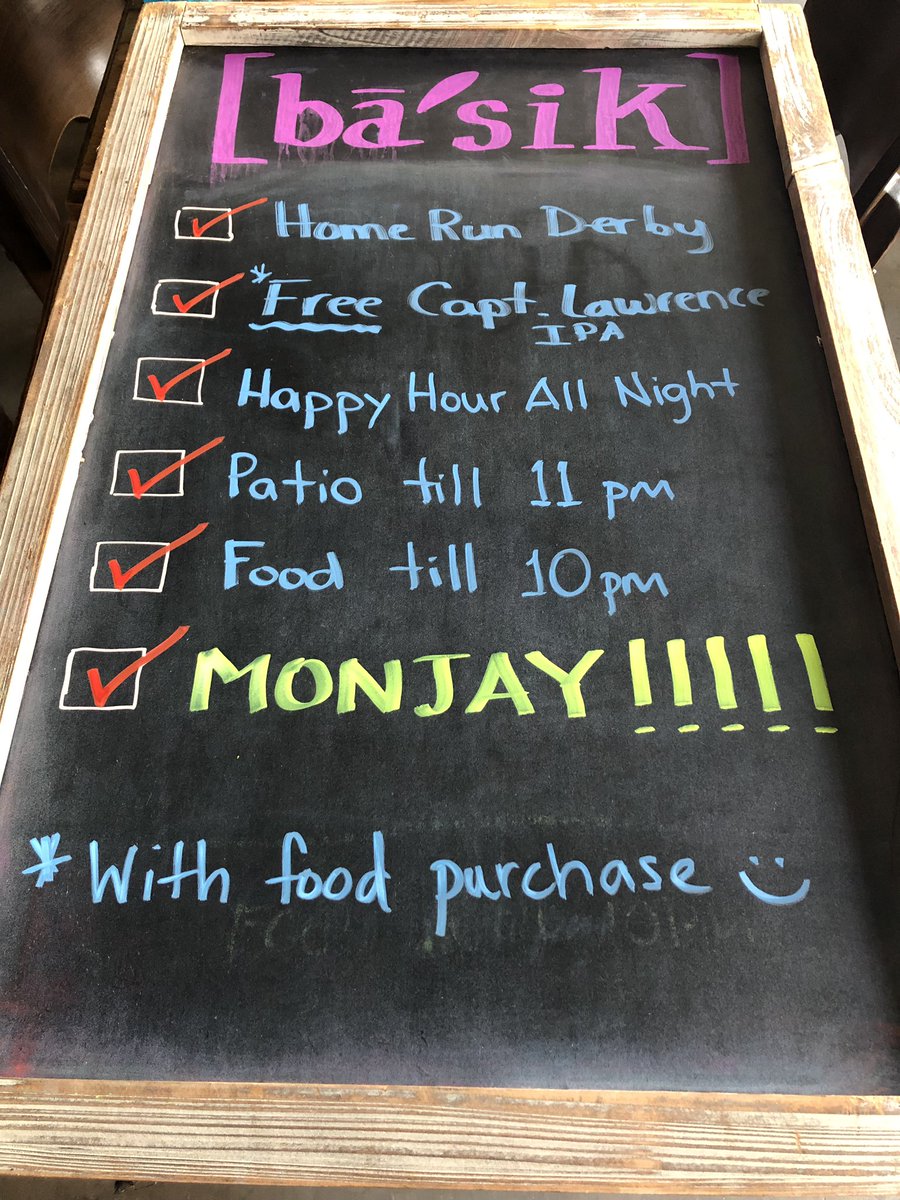 [bā'sik]
Home Run Derby
*Free Capt. Lawrence
IPA
Happy Hour All Night
Patio till 11 pm
Food till 10pm
MONJAY!!!!!
*With food purchase